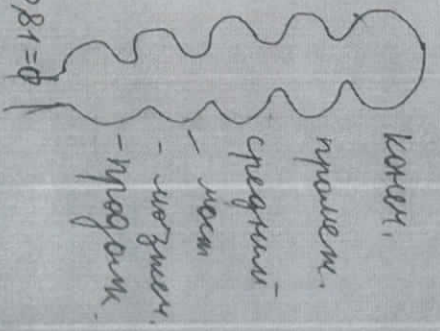 конеч.
промеж.
средний
- мост
- мозжеч.
- продолг.